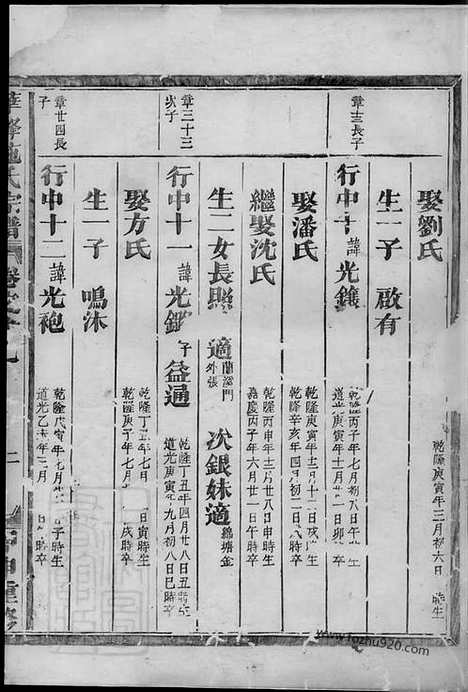 娶劉氏 乾隆庚寅年三月初六日 時生
生一子 啟有
章十三長子
行中十 諱光鑲 乾隆丙子年七月初八日午時生
道光庚寅年十一月廿一日 時卒
娶潘氏 乾隆庚寅年三月十一日戌時生
乾隆辛亥年四月初二日辰時卒
繼娶沈氏 乾隆丙申年三月廿八日申時生
嘉慶丙子年六月廿一日午時卒
生二女長縣 適蘭溪門外張 次銀妹適 錦塘金
章三十三次子
行中十一 諱光鄉 字益通 乾隆丁丑年四月廿八日丑時生
道光庚寅年九月初八日巳時卒
娶方氏 乾隆丁丑年七月 日寅時生
乾隆庚子年七月 日戌時卒
生一子 鳴沐
章廿四長子
行中十二 諱光袍 乾隆戊寅年七月 日子時生
道光乙未年三月 日 時卒
施氏宗譜 卷之
二
重修
www.fozhu920.com